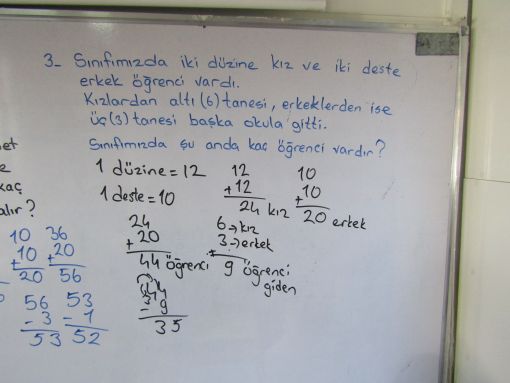 3- Sınıfımızda iki düzine kız ve iki deste
erkek öğrenci vardı.
Kızlardan altı (6) tanesi, erkeklerden ise
üç (3) tanesi başka okula gitti.
Sınıfımızda şu anda kaç öğrenci vardır?
1 düzine = 12
1 deste = 10
12
+12
24 kız
10
+10
20 erkek
24
+20
44 öğrenci
6→kız
3→erkek
+
9 öğrenci
giden
44
- 9
35
kaç
alır?
10
+10
20
36
+20
56
56
- 3
53
53
- 1
52